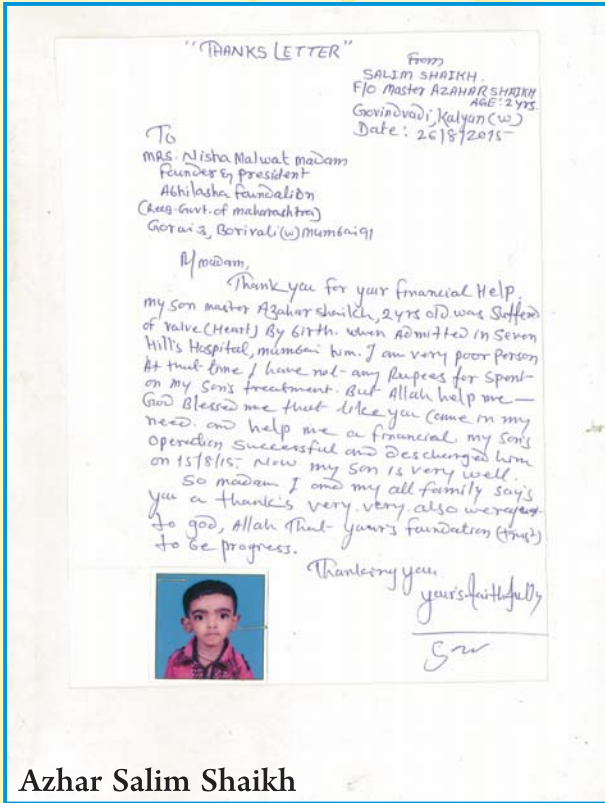 "THANKS LETTER"
From
SALIM SHAIKH.
F/O Master AZAHAR SHAIKH
AGE: 2 yrs.
Govindvadi, Kalyan (w)
Date: 26/8/2015
To
MRS. Nisha Malwat madam
Founder & president
Abhilasha foundation
(Reg. Govt. of maharashtra)
Gorai 3, Borivali (w) mumbai 91
R/madam,
Thank you for your financial Help.
my son master Azahar shaikh, 2 yrs old was Suffend
of valve (Heart) By birth. when Admitted in Seven
Hill's Hospital, mumbai him. I am very poor person
At that time I have not any Rupees for Spent
on my Son's treatment. But Allah help me —
God Blessed me that like you came in my
need. and help me a financial my son's
operation successful and descharged him
on 15/8/15. Now my son is very well.
So madam I and my all family say's
you a thank's very. very. also we
to god, Allah that your's foundation (trust)
to be progress.
Thanking you
your's faithfully
Azhar Salim Shaikh